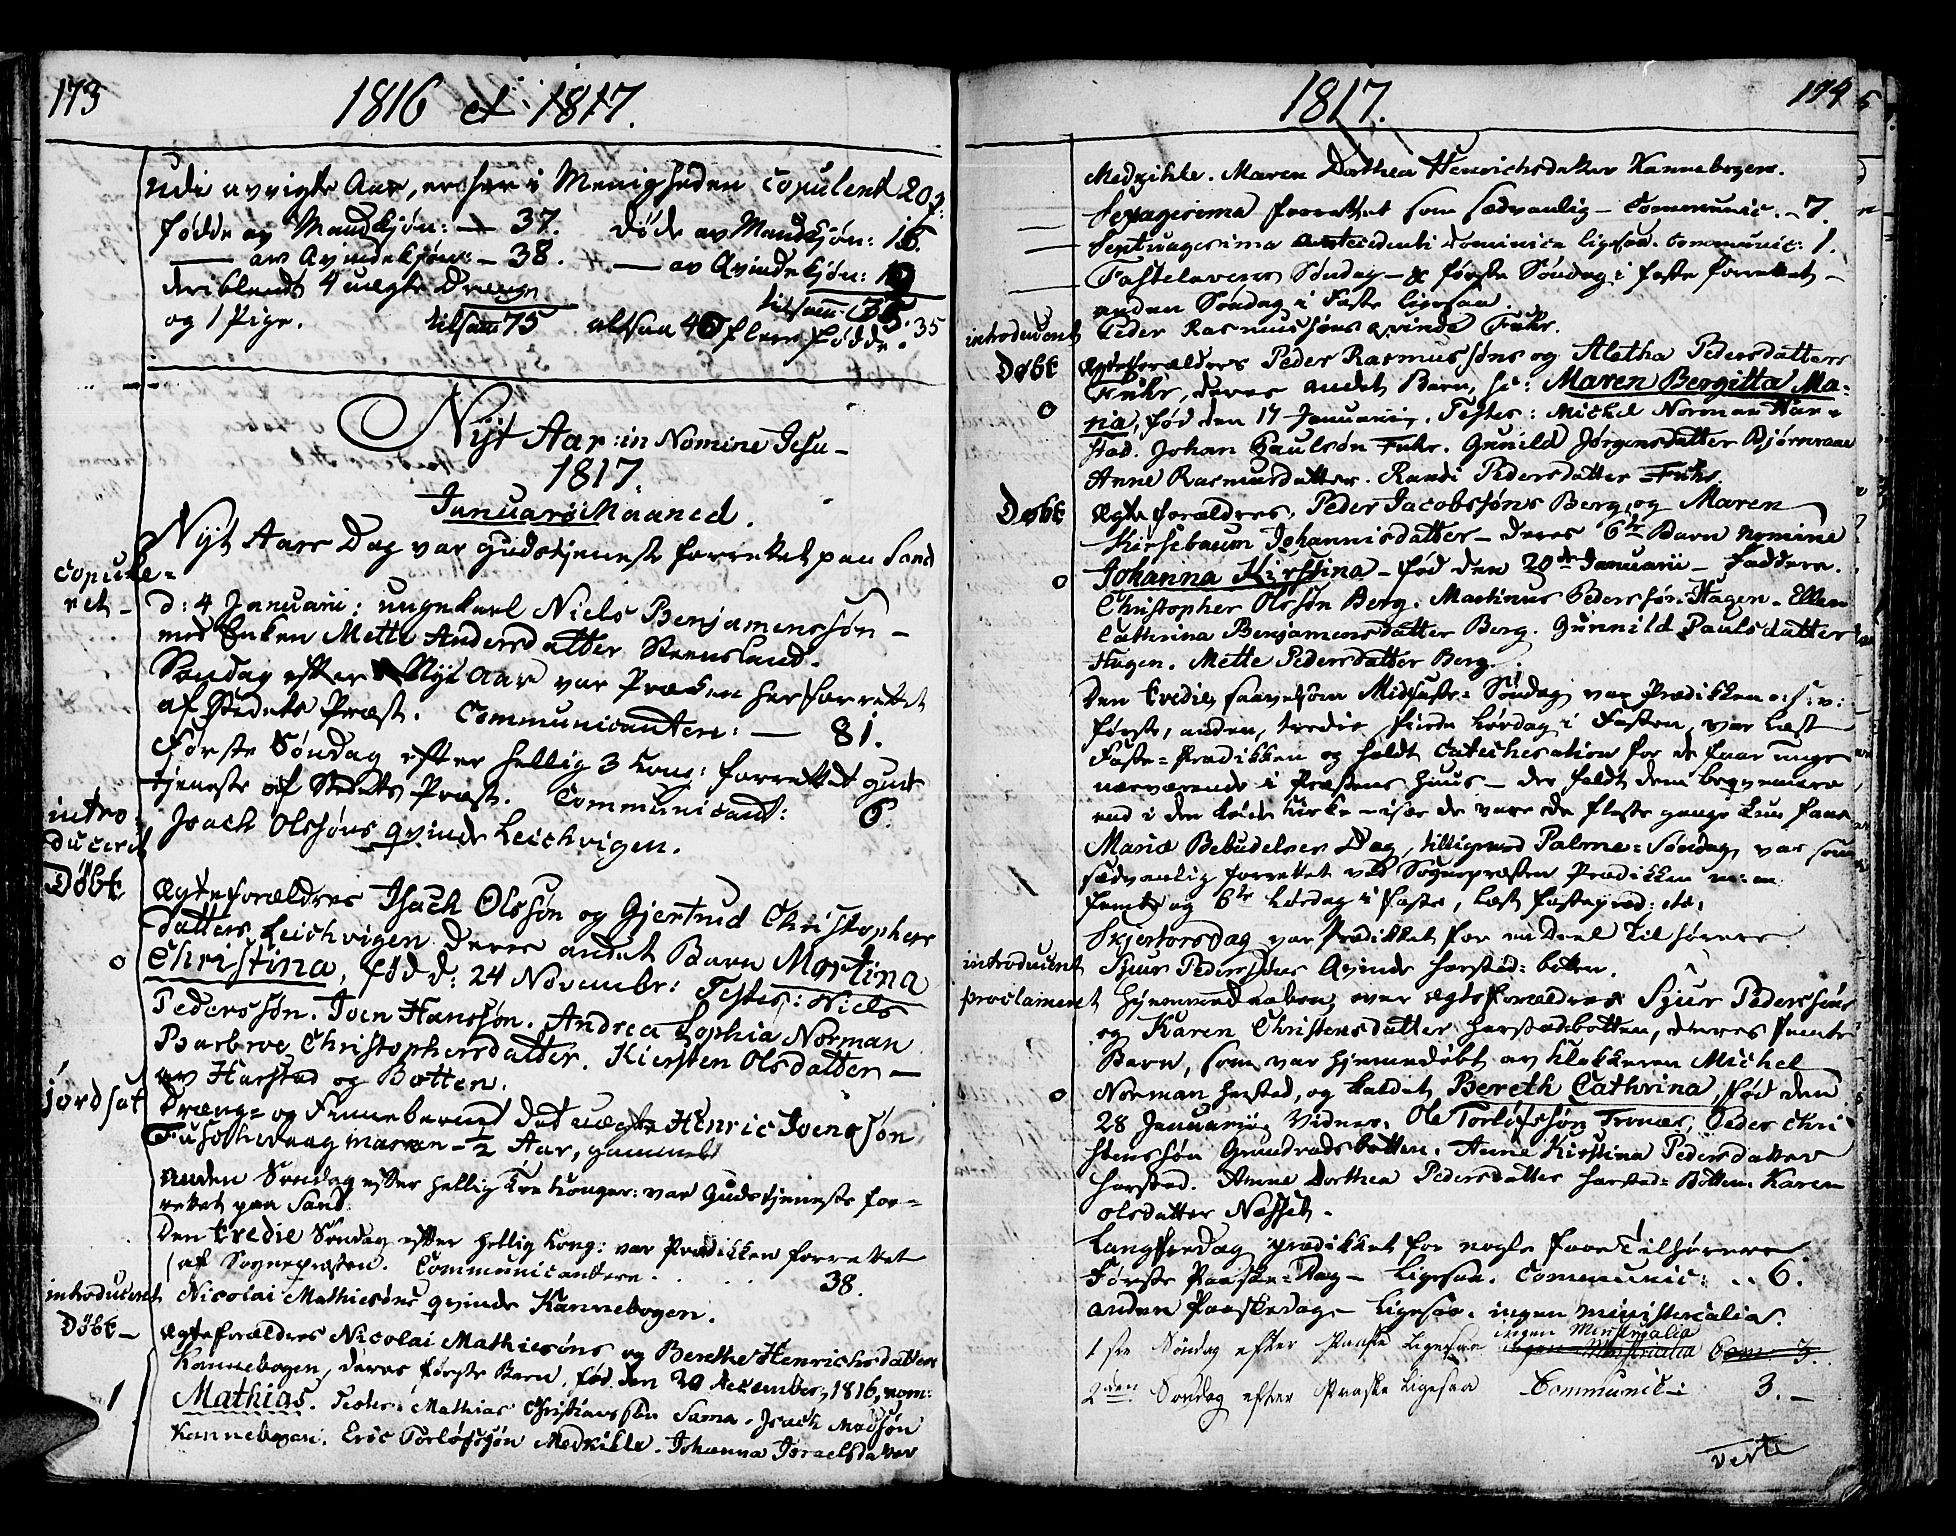 173
1816 et 1817.
udi avvigte Aar, er her i Menigheden Copulent 20 p:
fødde av Mandkjøn: — 37. Døde av Mandkjøn: 16.
— av Qvindekjøn: — 38. — av Qvindekjøn: 19
deriblandt 4 uægte Drenge
og 1 Pige. tilsam 75 altsaa 40 flere fødde. tilsam: 35. 35
Nyt Aar: in Nomine Jesu —
1817.
Januarii Maaned.
Nyt Aars Dag var Gudstjeneste forrettet paa Sand
copule=
ret —
d: 4 Januarii: ungekarl Niels Benjamenssøn —
med Enken Mette Andersdatter Steensland.
Søndag efter Nyt Aar var Præken her forrettet
af Stedets Præst. Communicantere: — 81.
Første Søndag efter Hellig 3 Kong: forrettet Guds
tjeneste af Stedets Præst. Communicant: 6.
intro:
ducert
Isach Olssøns qvinde Leichvigen.
Døbt
Ægteforældres Isach Olssøn og Gjertrud Christophers
datters Leichvigen deres andet Barn Martina
Christina, fød d: 24 Novembr: Testes: Niels
Pederssøn. Joen Hanssøn. Andrea Sophia Norman
Barbroe Christophersdatter. Kiersten Olsdatter —
av Harstad og Botten.
jordsat
Dreng= og Finnebarnet det uægte Henric Joenssøn
Fuskhevaag marken — ½ Aar, gammel
Anden Søndag efter Hellig tre Konger: var Gudstjeneste for=
rettet paa Sand.
Den tredie Søndag efter Hellig Kong: var Prædikken forrettet
af Sognepræsten. Communicantere . . . . 38.
introducert
Nicolai Mathiesøns qvinde Kannebogen.
Døbt —
Ægteforældres Nicolai Mathiesøns og Berethe Henrichsdatters
Kannebogen, deres første Barn, fød den 20 December, 1816, nom:
1
Mathias. Testes: Mathias Christianssøn Sama. Isach Madssøn
Kannebogen. Eric Torlofssøn Medkihle. Johanna Israelsdatter
1817.
174
Medkihle. Maren Dorthea Henrichsdatter Kannebogen.
Sexagesima forrettet som sædvanlig — Communic. — 7.
Septuagesima antecedenti Dominica ligesaa. Communic: 1.
Fastelavens Søndag — & første Søndag i Faste forrettet —
anden Søndag i Faste ligesaa.
introducert
Peder Rasmussøns qvinde Fuhr.
Døbt
Ægteforældres Peder Rasmussøns og Aletha Pedersdatters
Fuhr, deres andet Barn, hc: Maren Bergitta Ma=
ria, fød den 17 Januarii. Testes: Michel Norman Har=
stad. Johan Paulsøn Fuhr. Gunild Jørgensdatter Bjørnraae
Anne Rasmusdatter. Randi Pedersdatter Fuhr.
Døbt
Ægteforældres, Peder Jacobssøns Berg, og Maren
Kirsebaum Johannisdatter — deres 6te Barn nomine
Johanna Kirstina — fød den 20de Januarii — Faddere.
Christopher Olssøn Berg. Martinus Pederssøn Hagen. Ellen
Cathrina Benjamensdatter Berg. Gunnild Paulsdatter
Hagen. Mette Pedersdatter Berg.
Den tredie, saavelsom Midfaste= Søndag var Prædikken o: s: v:
første, anden, tredie fierde Lørdag i Fasten, var læst
Faste= Prædikken og holdt Catechisation for de faae unge
nærværende i Præstens Huus — der faldt dem beqvemere
end i den kolde Kirke — især de vare de fleste gange kun faae
Mariæ Bebudelses Dag, tilligemed Palme= Søndag var som
sædvanlig forrettet ved Sognepræsten Prædikken m: m:
femte og 6te Lørdag i Faste, læst fastepræd: etc:
Skjertorsdag var Prædikket for en Deel Tilhørere.
introducert
Sjuur Pederssøns Qvinde Harstad= botten.
proclameret
Hjemmedaaben over Ægteforældres Sjur Pederssøns
og Karen Christensdatter Harstadbotten, deres femte
Barn, som var hjemmedøbt av Klokkeren Michel
Norman Harstad, og kaldet Bereth Cathrina, fød den
28 Januarii. Vidner, Ole Torlofssøn Trones, Peder Chri
stenssøn Gundradsbotten. Anne Kirstina Pedersdatter
Harstad. Anne Dorthea Pedersdatter Harstad= Botten. Karen
Olsdatter Næsset.
Langfredag prædikket for nogle faae Tilhørere
Første Paaske= Dag — ligesaa. Communic: . . 6.
Anden Paaskedag — ligesaa. ingen ministerialia.
1ste Søndag efter Paaske ligesaa ingen Ministerialia Com: 3.
2den Søndag efter Paaske ligesaa Communic: 3. —
verte